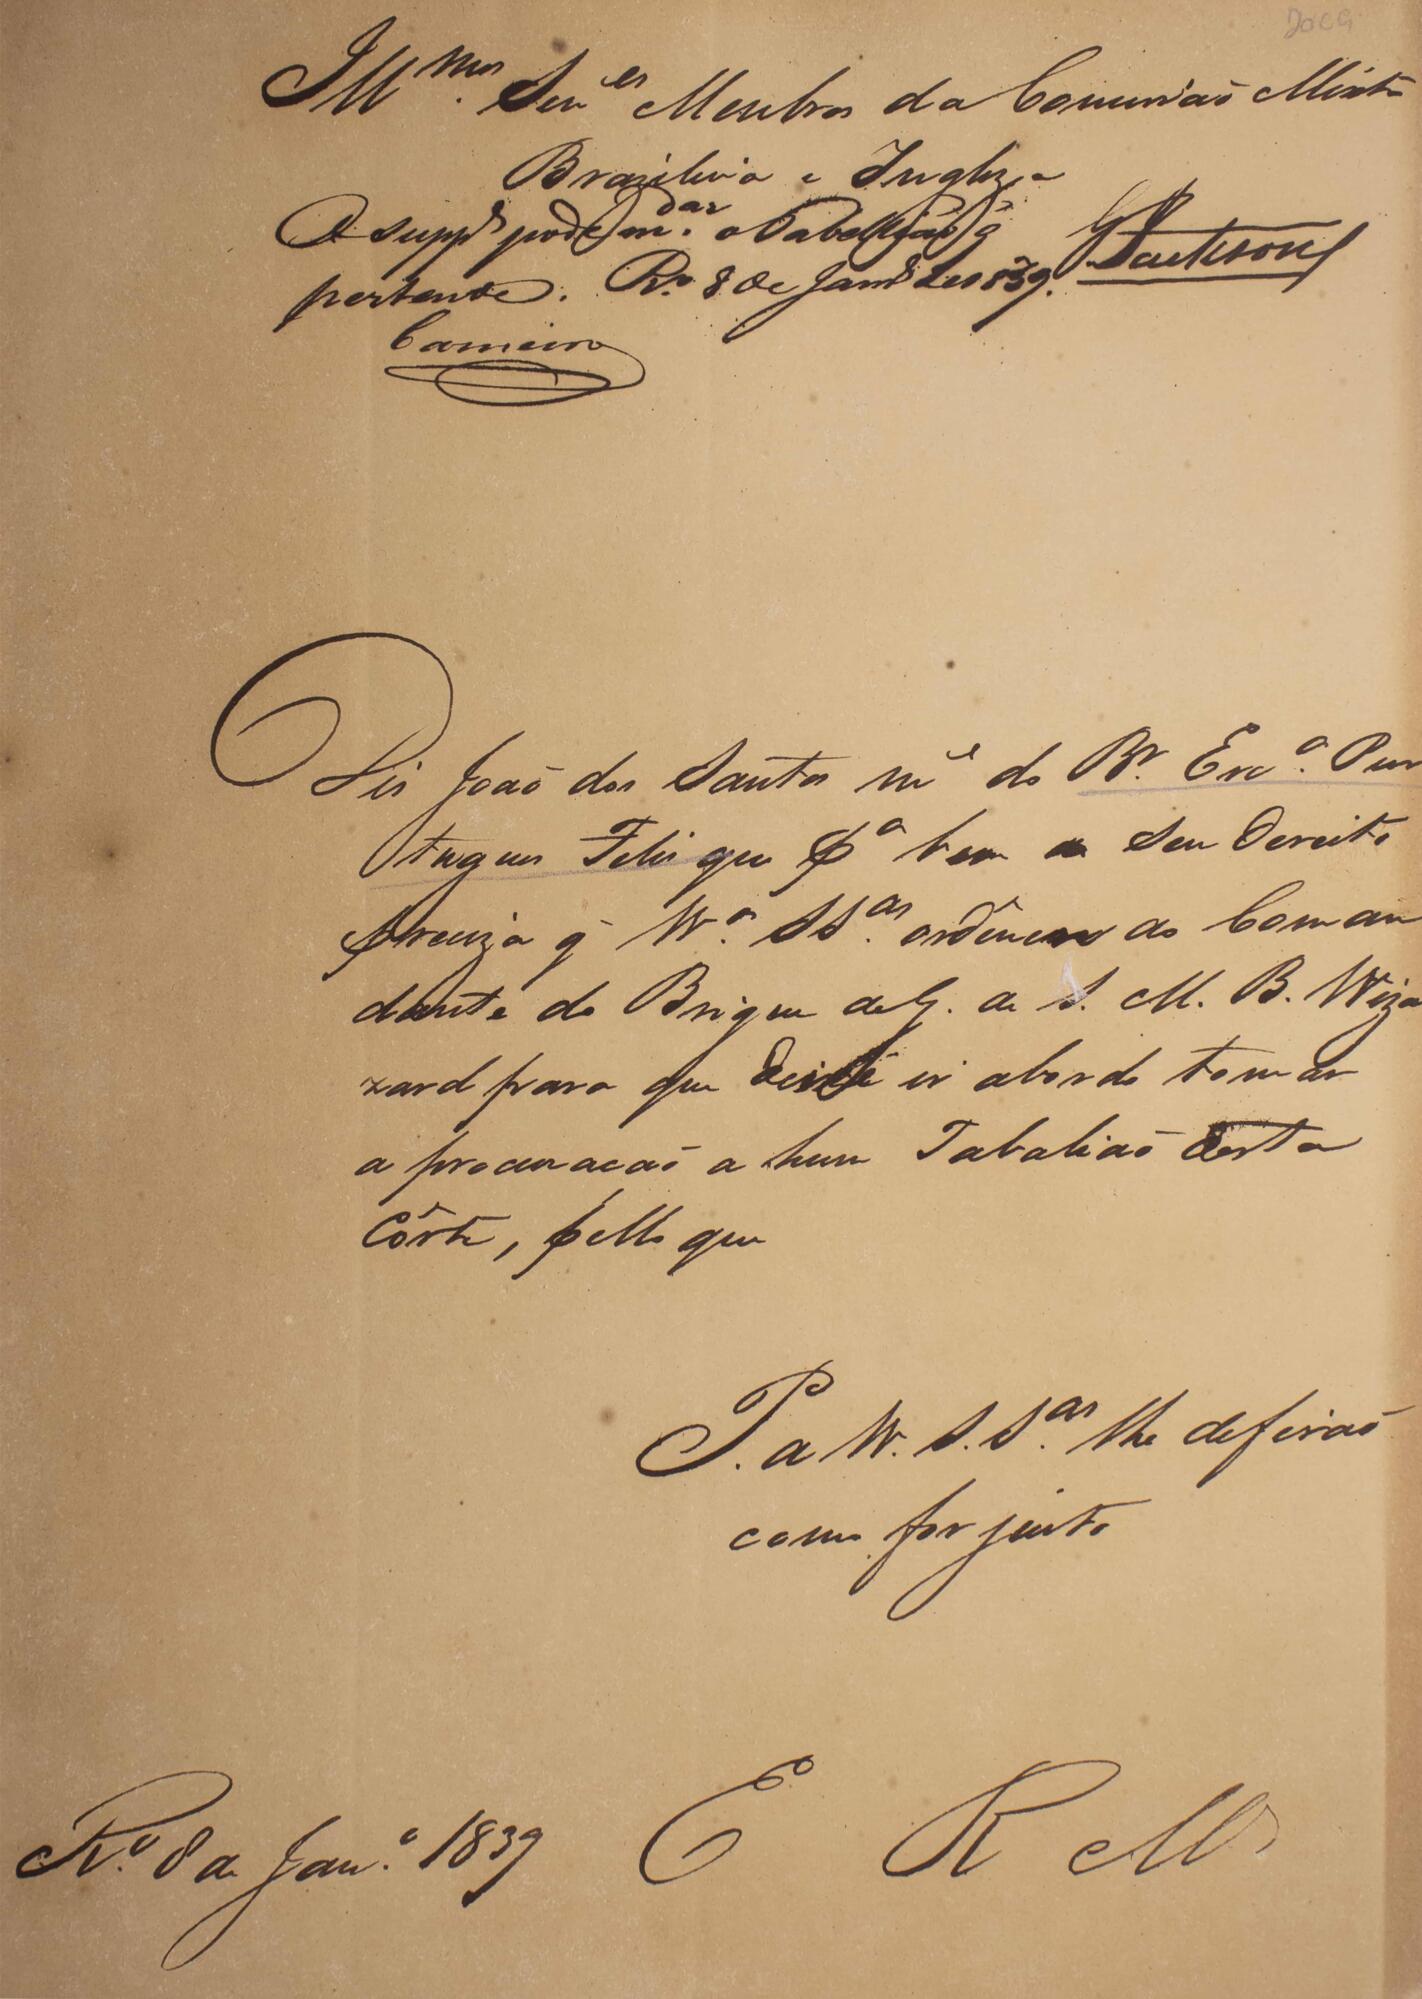 Illmos. Senres Membros da Comissaõ Mixta
Brazileira e Ingleza
O suppe pode mdar o Tabelliaõ q̃
pertende. Ro. 8 de Janro de 1839.
Jackson
Carneiro
Diz Joaõ dos Santos me do Br. Esca. Por
tugues Felis que pa bem de seu Dereito
preciza q̃ Va. SSas. ordênem ao Coman
dante do Brigue de G. de S. M. B. Wiza
zard para que deixe ir abordo tomar
a procuracaõ a hum Tabaliaõ desta
Côrte, pello que
P. a V. S. Sas. lhe defiraõ
como for justo
Ro. 8 de Jano. 1839
E R Mce